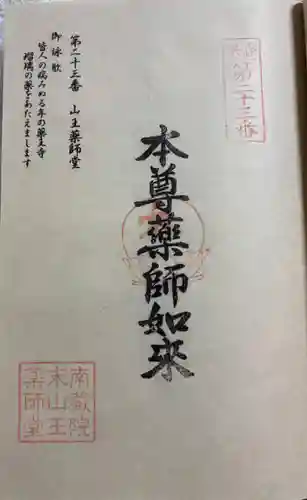 第二十三番
第二十三番 山王薬師堂
御詠歌
皆人の病みぬる年の薬王寺
瑠璃の薬をあたえまします
本尊薬師如来
南蔵院
末山王
薬師堂